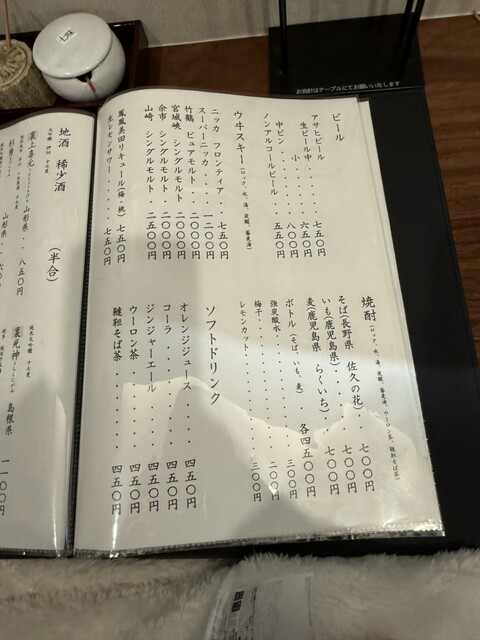 七味
お会計はテーブルにてお願いいたします
ビール
アサヒビール
生ビール中......七五〇円
小......六五〇円
中ビン......八〇〇円
ノンアルコールビール......五五〇円
ウヰスキー(ロック、水、湯、炭酸、蕎麦湯)
ニッカ フロンティア...七五〇円
スーパーニッカ......一二〇〇円
竹鶴 ピュアモルト..二〇〇〇円
宮城峡 シングルモルト.二〇〇〇円
余市 シングルモルト.二〇〇〇円
山崎 シングルモルト.二五〇〇円
鳳凰美田リキュール(梅・桃)七五〇円
生レモンサワー......七五〇円
焼酎(ロック、水、湯、炭酸、蕎麦湯、ウーロン茶、韃靼そば茶)
そば(長野県 佐久の花)..七〇〇円
いも(鹿児島県)......七〇〇円
麦(鹿児島県 らくいち)..七〇〇円
ボトル(そば、いも、麦).各四五〇〇円
強炭酸水......三〇〇円
梅干......二〇〇円
レモンカット......三〇〇円
ソフトドリンク
オレンジジュース....四五〇円
コーラ......四五〇円
ジンジャーエール....四五〇円
ウーロン茶......四五〇円
韃靼そば茶......四五〇円
地酒 稀少酒 (半合)
裏上喜元
山形県..八五〇円
杉勇
山形県
純米大吟醸 十七度
裏死神
島根県
一一〇〇円